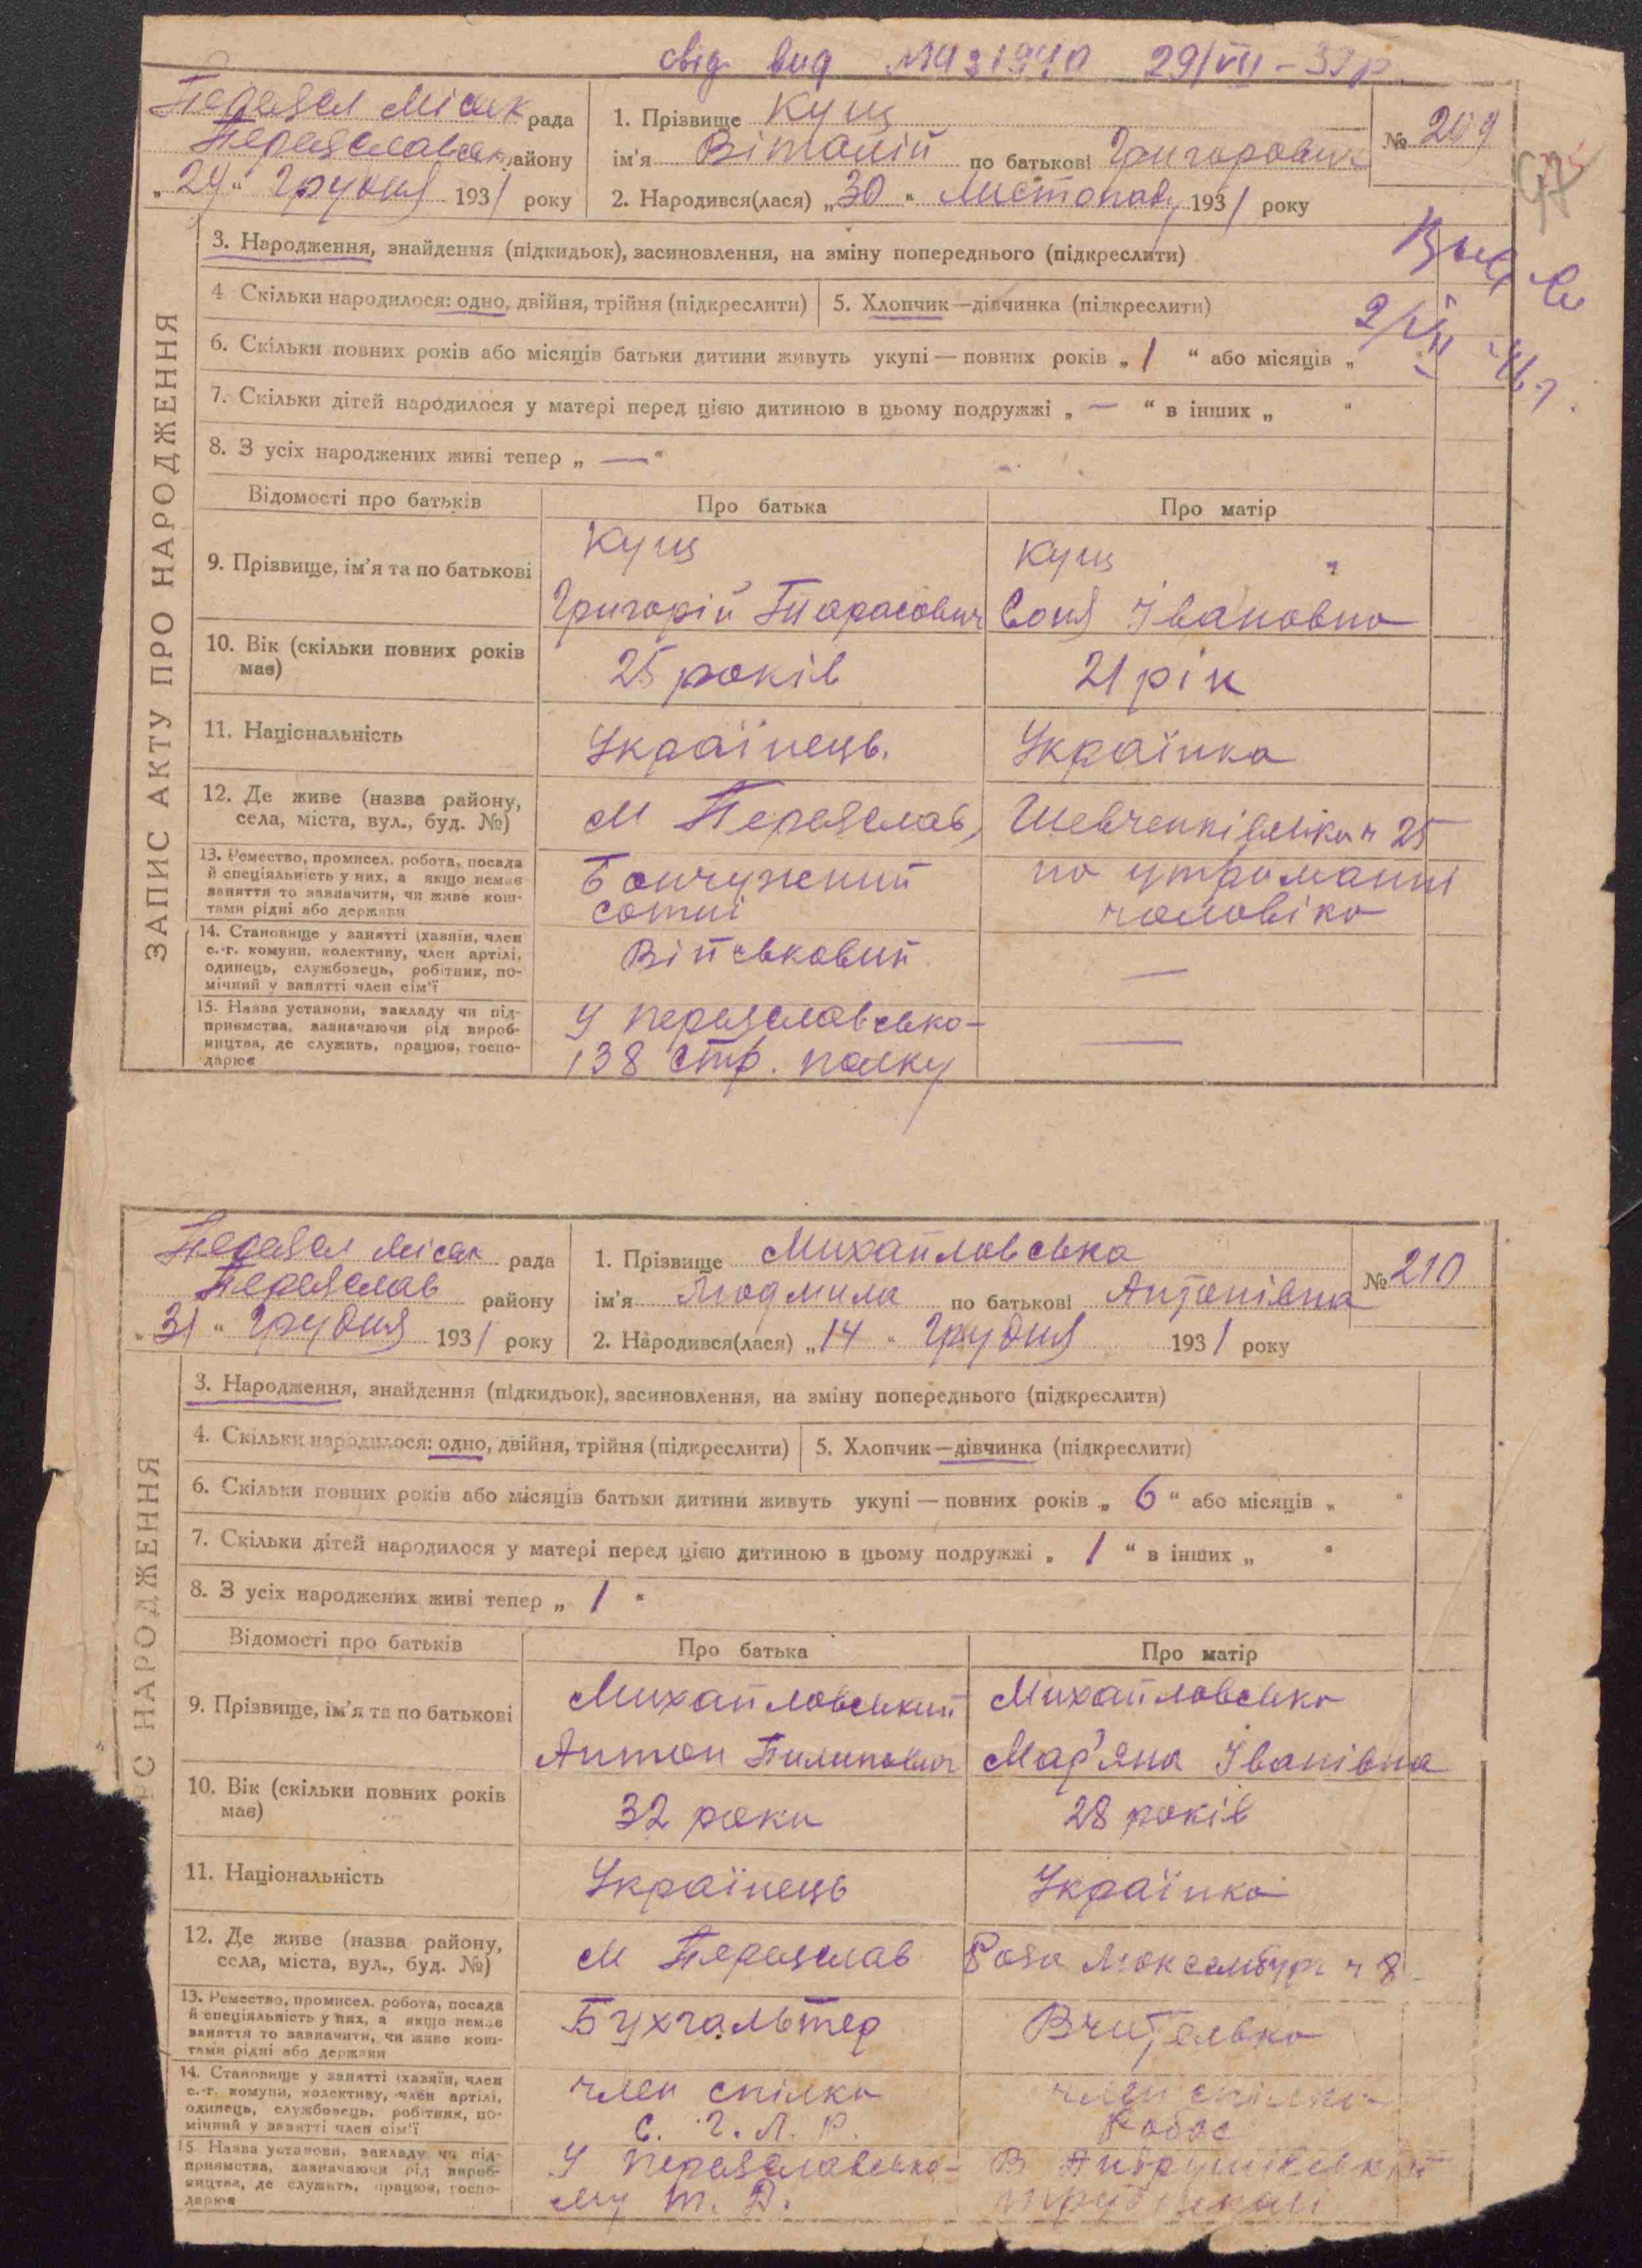 свід вид № 29/VII – 37р.
Переясл Міськ рада
Переяславськ району
„24“ Грудня 1931 року
1. Прізвище Кущ
ім'я Віталій по батькові Григорович
2. Народився(лася) „30“ Листопаду 1931 року
№ 209
ЗАПИС АКТУ ПРО НАРОДЖЕННЯ
3. Народження, знайдення (підкидьок), засиновлення, на зміну попереднього (підкреслити)
4 Скільки народилося: одно, двійня, трійня (підкреслити)
5. Хлопчик—дівчинка (підкреслити)
6. Скільки повних років або місяців батьки дитини живуть укупі — повних років „1“ або місяців „ “
7. Скільки дітей народилося у матері перед цією дитиною в цьому подружжі „—“ в інших „ “
8. З усіх народжених живі тепер „—“
Відомості про батьків
Про батька
Про матір
9. Прізвище, ім'я та по батькові
Кущ
Григорій Тарасович
Кущ
Соня Івановна
10. Вік (скільки повних років має)
25 років
21 рік
11. Національність
Українець.
Українка
12. Де живе (назва району, села, міста, вул., буд. №)
м Переяслав,
Шевченківська ч 25
13. Ремество, промисел, робота, посада й спеціяльність у них, а якщо немає заняття то зазначити, чи живе коштами рідні або держави
сотні
на утриманні
чоловіка
14. Становище у занятті (хазяїн, член с.-г. комуни, колективу, член артілі, одинець, службовець, робітник, помічний у занятті член сім'ї
Військовий.
—
15. Назва установи, закладу чи підприємства, зазначаючи рід виробництва, де служить, працює, господарює
У переяславсько-
138 стр. полку
—
Переясл Міськ рада
Переяслав району
„31“ Грудня 1931 року
1. Прізвище Михайловська
ім'я Людмила по батькові Антонівна
2. Народився(лася) „14“ Грудня 1931 року
№ 210
РО НАРОДЖЕННЯ
3. Народження, знайдення (підкидьок), засиновлення, на зміну попереднього (підкреслити)
4. Скільки народилося: одно, двійня, трійня (підкреслити)
5. Хлопчик—дівчинка (підкреслити)
6. Скільки повних років або місяців батьки дитини живуть укупі — повних років „6“ або місяців „ “
7. Скільки дітей народилося у матері перед цією дитиною в цьому подружжі „1“ в інших „ “
8. З усіх народжених живі тепер „1“
Відомості про батьків
Про батька
Про матір
9. Прізвище, ім'я та по батькові
Михайловський
Антон Пилипович
Михайловська
Мар'яна Іванівна
10. Вік (скільки повних років має)
32 роки
28 років
11. Національність
Українець
Українка
12. Де живе (назва району, села, міста, вул., буд. №)
м Переяслав
Роза Люксембург ч 8
13. Ремество, промисел, робота, посада й спеціяльність у них, а якщо немає заняття то зазначити, чи живе коштами рідні або держави
Бухгальтер
Вчителька
14. Становище у занятті (хазяїн, член с.-г. комуни, колективу, член артілі, одинець, службовець, робітник, помічний у занятті член сім'ї
член спілки
С. Г. Л. Р.
член спілки
Робос
15. Назва установи, закладу чи підприємства, зазначаючи рід виробництва, де служить, працює, господарює
У переяславсько-
му т. Д.
В Андрушівській
трудшколі